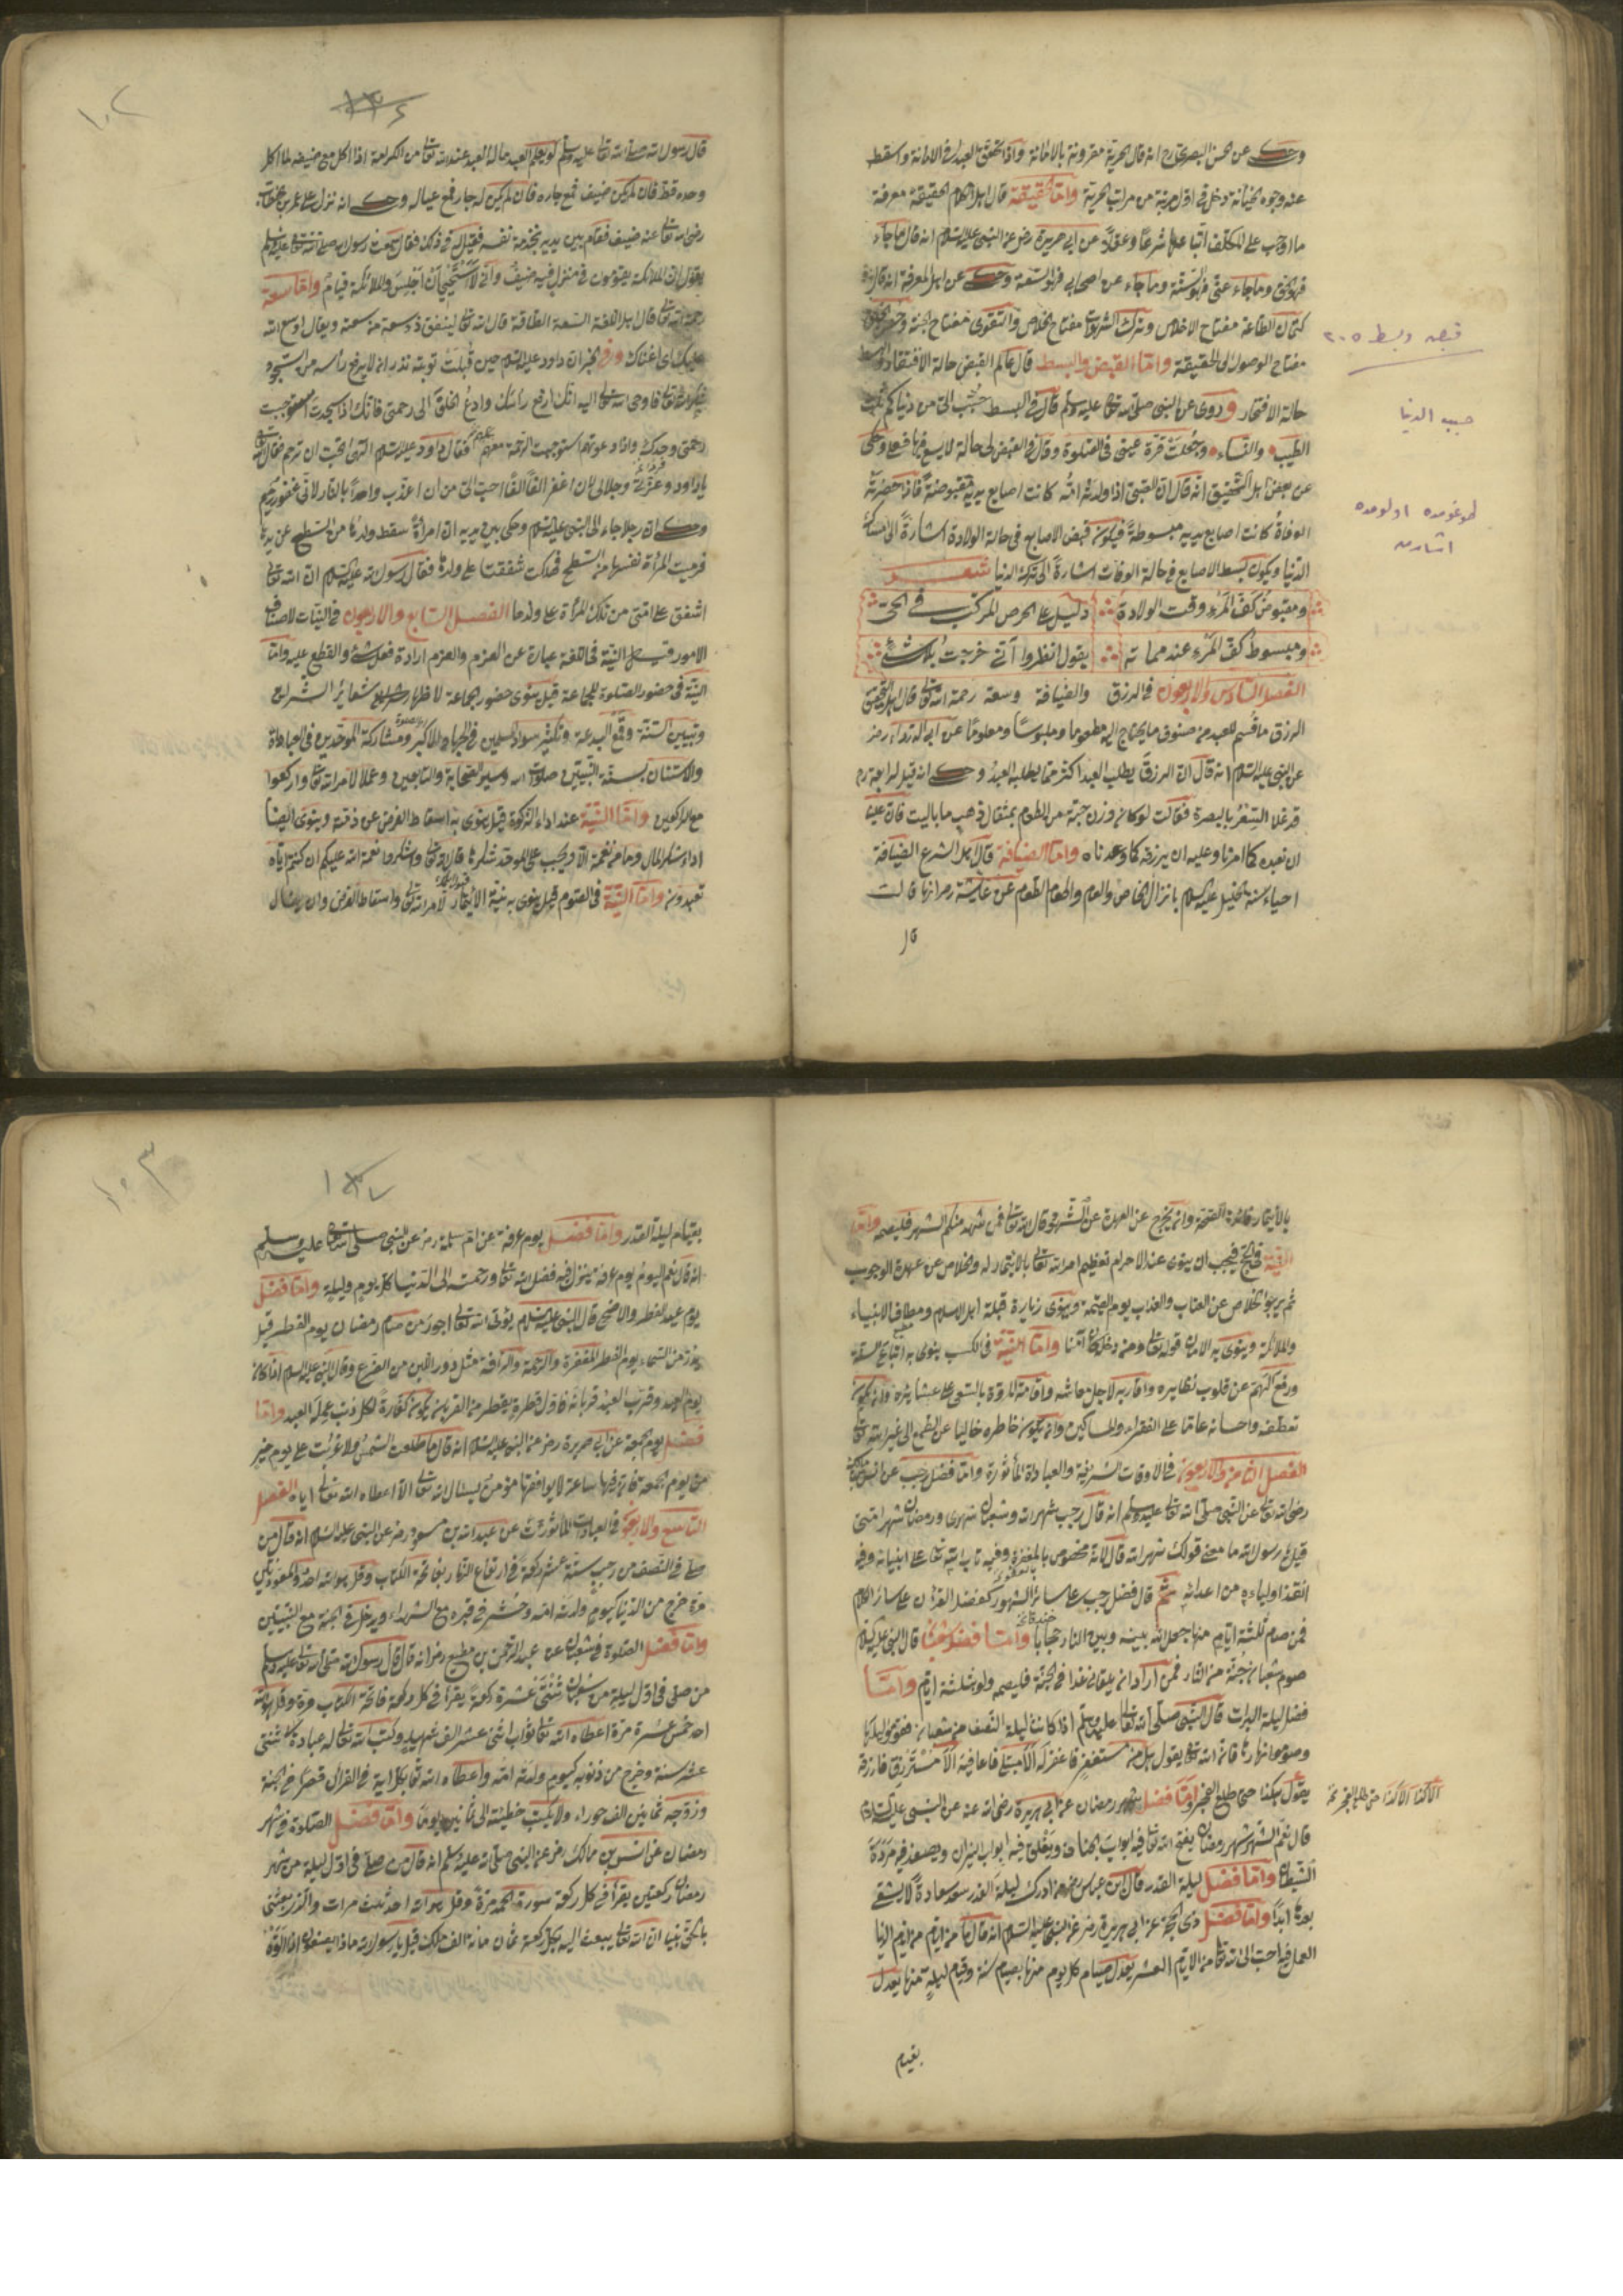 وحكى عن الحسن البصرى رح انه قال الحرية مقرونة بالامانة واذا تحقق العبد فى الامانة واسقط
عنه وجوه الخيانة دخل فى اول مرتبة من مراتب الحرية واما الحقيقة قال اهل الكلام الحقيقة معرفة
ما اوجب على المكلف اتباعها شرعا وعقلا عن ابى هريرة رض عن النبى عليه السلام انه قال ما جاء
فهو الحق وما جاء عنى فهو السنة وما جاء عن اصحابى فهو السعة وحكى عن اهل المعرفة انه قال
كتمان الطاعة مفتاح الاخلاص وترك الشهوات مفتاح الخلاص والتقوى مفتاح الجنة
مفتاح الوصول الى الحقيقة واما القبض والبسط قال عالم القبض حالة الافتقار والبسط
حالة الافتخار وروى عن النبى صلى الله تعالى عليه وسلم قال فى البسط حبب الى من دنياكم ثلث
الطيب والنساء وجعلت قرة عينى فى الصلوة وقال فى القبض لى حالة لا يسع فيها
عن بعض اهل التحقيق انه قال ان الصبى اذا ولدته امه كانت اصابع يديه مقبوضة فاذا حضرته
الوفاة كانت اصابع يديه مبسوطة فيكون قبض الاصابع فى حالة الولادة اشارة الى امساك
الدنيا ويكون بسط الاصابع فى حالة الوفات اشارة الى تركة الدنيا شعر
ومقبوض كف المرء وقت الولادة دليل على الحرص المركب فى الحى
ومبسوط كف المرء عند مماته يقول انظروا انى خرجت بلا شئ
الفصل السادس والاربعون فى الرزق والضيافة وسعة رحمة الله تعالى قال اهل التحقيق
الرزق ما قسم للعبد من صنوف ما يحتاج اليه مطعوما وملبوسا ومعلوما عن ابى الدرداء رض
عن النبى عليه السلام انه قال ان الرزق يطلب العبد اكثر مما يطلبه العبد وحكى انه قيل لرابعة رح
قد غلا السعر بالبصرة فقالت لو كان وزن حبة من الطعم بمثقال ذهب ما باليت فان علينا
ان نعبده كما امرنا وعليه ان يرزقنا كما وعدنا واما الضيافة قال اهل الشرع الضيافة
احياء سنة الخليل عليه السلام بانزال الخاص والعام واطعام الطعام عن عائشة رض انها قالت
قال
قبض وبسط ٢٠٥
حبب الدنيا
طوغومده اولومده
اشارت
١٠٢
١٣٦
قال رسول الله صلى الله تعالى عليه وسلم لو يعلم العبد ما للعبد عند الله تعالى من الكرامة اذا اكل مع ضيفه لما اكل
وحده قط فان لم يكن ضيف فمع جاره فان لم يكن له جار فمع عياله وحكى انه نزل على عمر بن خطاب
رضى الله تعالى عنه ضيف فقام بين يديه بخدمة نفسه فقيل له فى ذلك فقال سمعت رسول الله صلى الله تعالى عليه وسلم
يقول ان الملائكة يقومون فى منزل فيه ضيف وانى لاستحيى ان اجلس والملائكة قيام واما سعة
رحمة الله تعالى قال اهل اللغة السعة الطاقة قال الله تعالى لينفق ذو سعة من سعته ويقال اوسع الله
عليك اى اغناك وفى الخبر ان داود عليه السلام حين قبلت توبته نذر انه لا يرفع رأسه من السجود
شكرا لله تعالى فاوحى الله تعالى اليه انك ارفع رأسك وادع الخلق الى رحمتى فانك اذا سجدت استوجبت
رحمتى وحدك واذا دعوتهم استوجبت الرحمة معهم فقال داود عليه السلام الهى اتحب ان ترحم فقال الله تعالى
يا داود وعزتى وجلالى لان اغفر الفا الفا احب الى من ان اعذب واحدا بالنار لانى غفور رحيم
وحكى ان رجلا جاء الى النبى عليه السلام وحكى بين يديه ان امرأة سقط ولدها من السطح عن يدها
فرميت المرأة نفسها من السطح فهلكت شفقتا على ولدها فقال رسول الله عليه السلام ان الله تعالى
اشفق على امتى من تلك المرأة على ولدها الفصل السابع والاربعون فى النيات لاصناف
الامور قيل النية فى اللغة عبارة عن العزم والعزم ارادة فعل شئ والقطع عليه واما
النية فى حضور الصلوة للجماعة قيل ينوى حضور الجماعة لاظهار شعائر الشرايع
وتبيين السنة وقمع البدعة وتكثير سواد المسلمين فى الجهاد الاكبر ومشاركة الموحدين فى العبادة
والاستنان بسنة النبيين صلوات الله وسير الصحابة والتابعين وعملا لامر الله تعالى واركعوا
مع الراكعين واما النية عند اداء الزكوة قيل ينوى به اسقاط الفرض عن ذمته وينوى ايضا
اداء شكر المال وما من نعمة الا ويجب على الموحد شكرها قال الله تعالى واشكروا نعمة الله عليكم ان كنتم اياه
تعبدون واما النية فى الصوم قيل ينوى به نية الايتمار لامر الله تعالى واسقاط الفرض وان ينال
بالايتمار فائدة الصحة وانه يخرج عن العهدة عن الشهر وقال الله تعالى فمن شهد منكم الشهر فليصمه واما
النية فى الحج فيجب ان ينوى عند الاحرام تعظيم امر الله تعالى بالايتمار له والخلاص من عهدة الوجوب
ثم يريد الخلاص عن العتاب والعذاب يوم القيمة وينوى زيارة قبلة اهل الاسلام ومطاف الانبياء
والملائكة وينوى به الامان قوله تعالى ومن دخله كان آمنا واما النية فى الكسب ينوى به اتباع السنة
ورفع الهم عن قلوب نظائره واقاربه لاجل معاشه واقامة المروة بالسعى على عشائره وان يكون
تعطفه واحسانه عاما على الفقراء والمساكين وان يكون خاطره خاليا عن الطمع الى غير الله تعالى
الفصل الثامن والاربعون فى الاوقات الشريفة والعبادة المأثورة واما فضل رجب عن انس بن مالك
رضى الله تعالى عن النبى صلى الله تعالى عليه وسلم انه قال رجب شهر الله وشعبان شهرى ورمضان شهر امتى
قيل يا رسول الله ما معنى قولك شهر الله قال لانه مخصوص بالمغفرة وفيه تاب الله تعالى على انبيائه وفيه
انقذ اولياءه من اعدائه ثم قال فضل رجب على سائر الشهور كفضل القرآن على سائر الكلام
فمن صام ثلثة ايام منها جعل الله بينه وبين النار حجابا واما فضل شعبان قال النبى عليه السلام
صوم شعبان جنة من النار فمن اراد ان يلقانى غدا فى الجنة فليصمه ولو بثلثة ايام واما
فضل ليلة البرات قال النبى صلى الله تعالى عليه وسلم اذا كانت ليلة النصف من شعبان فقوموا ليلها
وصوموا نهارها فان الله تعالى يقول هل من مستغفر فاغفر له الا مبتلى فاعافيه الا مسترزق فارزقه
يقول هكذا حتى طلع الفجر واما فضل شهر رمضان عن ابى هريرة رضى الله عنه عن النبى عليه السلام
الا كذا الا كذا حتى طلع الفجر نخ
قال نعم الشهر شهر رمضان يفتح الله تعالى فيه ابواب الجنان ويغلق فيه ابواب النيران ويصفد فيه مردة
الشيطان واما فضل ليلة القدر قال ابن عباس رض من ادرك ليلة القدر سعد سعادة لا يشقى
بعدها ابدا واما فضل ذى الحجة عن ابى هريرة رض عن النبى عليه السلام انه قال ما من ايام من ايام الدنيا
العمل فيها احب الى الله تعالى من الايام العشر يعدل صيام كل يوم منها بصيام سنة وقيام ليلة منها يعدل
بقيام
١٠٣
١٣٧
بقيام ليلة القدر واما فضل يوم عرفة عن ام سلمة رض عن النبى صلى الله تعالى عليه وسلم
انه قال نعم اليوم يوم عرفة ينزل فيه فضل الله تعالى ورحمته الى الدنيا كل يوم وليلة واما فضل
يوم عيد الفطر والاضحى قال النبى عليه السلام يؤتى الله تعالى اجور من صام رمضان يوم الفطر قيل
ينزل من السماء يوم الفطر المغفرة والرحمة والرأفة مثل درور اللبن من الضرع وقال النبى عليه السلام اذا كان
يوم العيد وقرب العبد قربانه فاول قطرة يقطر من القربان يكون كفارة لكل ذنب عمله العبد واما
فضل يوم الجمعة عن ابى هريرة رض عن النبى عليه السلام انه قال ما طلعت الشمس ولا غربت على يوم خير
من يوم الجمعة فان فيها ساعة لا يوافقها مؤمن يسئال الله تعالى الا اعطاه الله تعالى اياه الفصل
التاسع والاربعون فى العبادات المأثورات عن عبد الله بن مسعود رض عن النبى عليه السلام انه قال من
صلى فى النصف من رجب ستة عشر ركعة فى ارتفاع النهار بفاتحة الكتاب وقل هو الله احد والمعوذتين
مرة خرج من الدنيا كيوم ولدته امه وحشر فى قبره مع الشهداء ويدخل فى الجنة مع النبيين
واما فضل الصلوة فى شعبان عن عبد الرحمن بن مطيع رض انه قال قال رسول الله صلى الله تعالى عليه وسلم
من صلى فى اول ليلة من شعبان ثنتى عشرة ركعة يقرأ فى كل ركعة فاتحة الكتاب مرة وقل هو الله
احد خمس عشرة مرة اعطاه الله تعالى ثواب اثنى عشر الف شهيد وكتب الله تعالى له عبادة اثنتى
عشر سنة وخرج من ذنوبه كيوم ولدته امه واعطاه الله تعالى بكل اية فى القرآن قصرا فى الجنة
وزوجه ثمانين الف حوراء ولا يكتب خطيئته الى ثمانين يوما واما فضل الصلوة فى شهر
رمضان عن انس بن مالك رض عن النبى صلى الله عليه وسلم انه قال من صلى فى اول ليلة من شهر
رمضان ركعتين يقرأ فى كل ركعة سورة الحمد مرة وقل هو الله احد ثلث مرات والذى بعثنى
بالحق نبيا ان الله تعالى يبعث اليه بكل ركعة ثمان مائة الف ملك قيل يا رسول الله ماذا يصنعون